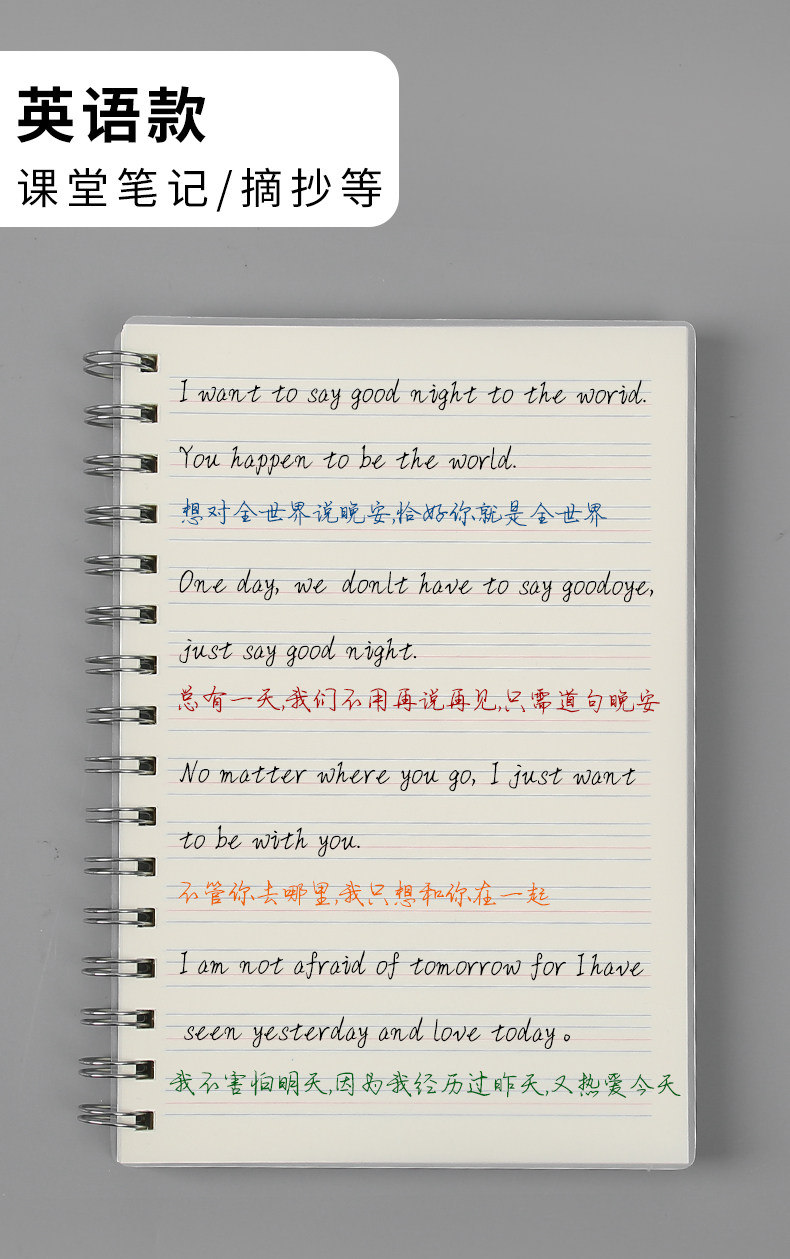 英语款
课堂笔记/摘抄等
I want to say good night to the worid.
You happen to be the world.
想对全世界说晚安,恰好你就是全世界
One day, we donlt have to say goodoye,
just say good night.
总有一天,我们不用再说再见,只需道句晚安
No matter where you go, I just want
to be with you.
不管你去哪里,我只想和你在一起
I am not afraid of tomorrow for I have
seen yesterday and love today。
我不害怕明天,因为我经历过昨天,又热爱今天